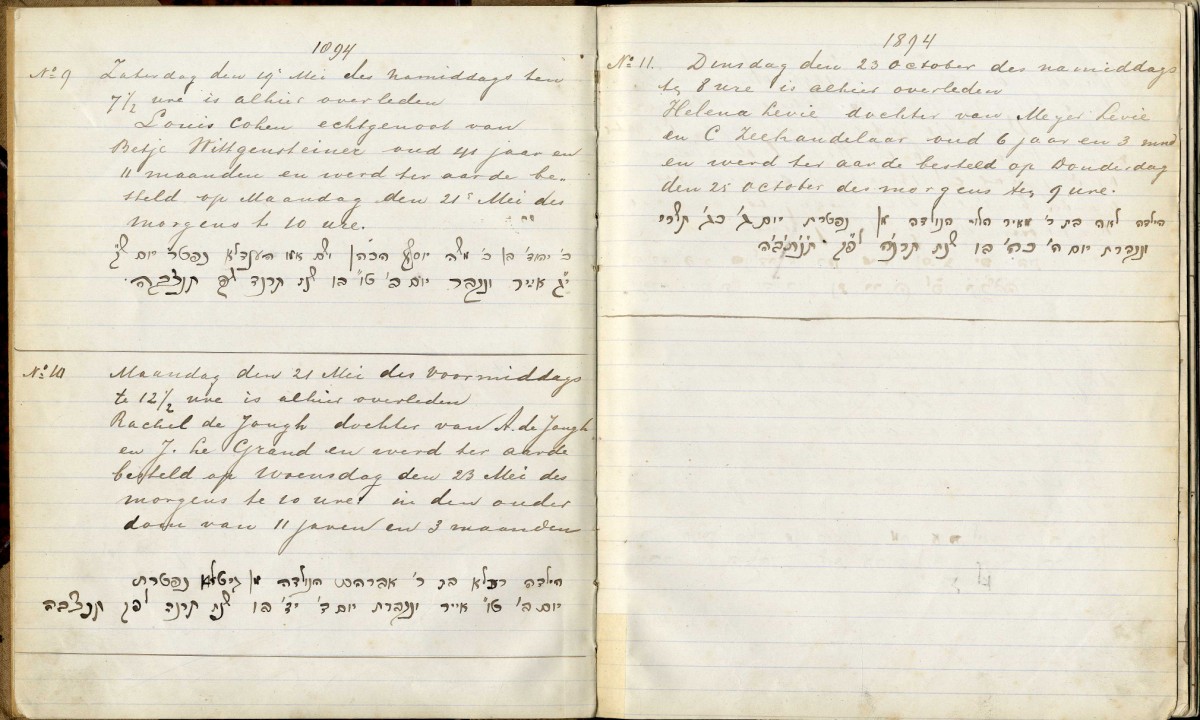 1894
No 9 Zaterdag den 19e Mei des namiddags ten
7 1/2 ure is alhier overleden
Louis Cohen echtgenoot van
Betje Wittgensteiner oud 41 jaar en
11 maanden en werd ter aarde be-
steld op Maandag den 21e Mei des
morgens te 10 ure.
כ' יהודי בן כ' משה יוסף הכהן ושם אמו הענדלא נפטר יום ש"ק
י"ג אייר ונקבר יום ב' ט"ו בו שנת תרנד לפק תנצבה.
No 10 Maandag den 21 Mei des voormiddags
te 12 1/2 ure is alhier overleden
Rachel de Jongh dochter van A. de Jongh
en J. le Grand en werd ter aarde
besteld op Woensdag den 23 Mei des
morgens te 10 ure in den ouder
dom van 11 jaren en 3 maanden
הילדה רחלא בת ר' אברהם הנולדה מן גיטלא נפטרת
יום ב' ט"ו אייר ונקברת יום ד' י"ז בו שנת תרנד לפק תנצבה
1894
No 11. Dinsdag den 23 October des namiddags
te 8 ure is alhier overleden
Helena Levie dochter van Meyer Levie
en C Zeehandelaar oud 6 jaar en 3 mnd
en werd ter aarde besteld op Donderdag
den 25 October des morgens te 9 ure.
הילדה לאה בת ר' מאיר הלוי הנולדה מן נפטרת יום ג' כג' תשרי
ונקברת יום ה' כה' בו שנת תרנ"ה לפ"ק. ת'נ'צ'ב'ה